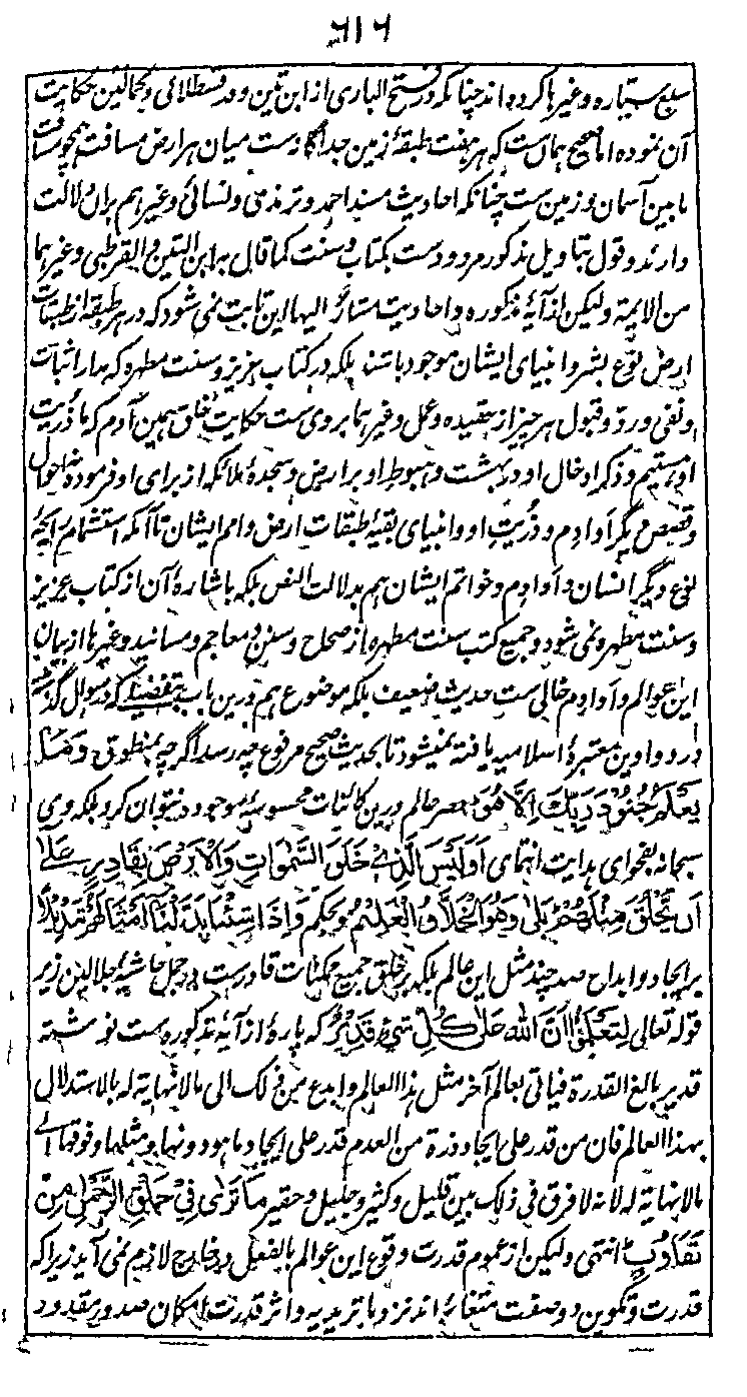 ۶۱۶
سبع سیاره و غیرها کرده اند چنانکه در فتح الباری از ابن تین و در قسطلانی و کمالین حکایت
آن نموده اما صحیح همان ست که هر هفت طبقهٔ زمین جداگانه ست میان هر ارض مسافت همچو مسافت
ما بین آسمان و زمین ست چنانکه احادیث مسند احمد و ترمذی و نسائی و غیرهم بران دلالت
دارند و قول بتاویل مذکور مردود ست بکتاب و سنت کما قال به ابن التین و القرطبی و غیرهما
من الایمة ولیکن از آیهٔ مذکوره و احادیث مشار الیها این ثابت نمی شود که در هر طبقه از طبقات
ارض نوع بشر و انبیای ایشان موجود باشند بلکه در کتاب عزیز و سنت مطهره که مدار اثبات
و نفی و رد و قبول هر چیز از عقیده و عمل و غیرهما بر وی ست حکایت خلق همین آدم که ما ذریت
او هستیم و ذکر ادخال او در بهشت و هبوط او بر ارض و سجدهٔ ملائکه از برای او فرموده نه احوال
و قصص دیگر اوادم و ذریت او و انبیای بقیهٔ طبقات ارض و امم ایشان تا آنکه استشمام رایحهٔ
نوع دیگر انسان و اوادم و خواتم ایشان هم بدلالت النص بلکه باشارهٔ آن از کتاب عزیز
و سنت مطهره نمی شود و جمیع کتب سنت مطهره از صحاح و سنن و معاجم و مسانید و غیرها از بیان
این عوالم و اوادم خالی ست حدیث ضعیف بلکه موضوع هم درین باب بتفصیلے که در سوال گذشته
در دواوین معتبرهٔ اسلامیه یافته نمیشود تا بحدیث صحیح مرفوع چه رسد اگرچه بمنطوق وَمَا
یَعْلَمُ جُنُوْدَ رَبِّكَ اِلَّا هُوَ حصر عالم درین کائنات محسوسهٔ موجوده نتوان کرد بلکه وی
سبحانه بفحوای هدایت انتمای اَوَلَیْسَ الَّذِیْ خَلَقَ السَّمٰوَاتِ وَالْاَرْضَ بِقَادِرٍ عَلٰی
اَنْ یَّخْلُقَ مِثْلَهُمْ بَلٰی وَهُوَ الْخَلَّاقُ الْعَلِیْمُ و بحکم وَاِذَا شِئْنَا بَدَّلْنَا اَمْثَالَهُمْ تَبْدِیْلًا
بر ایجاد و ابداح صد چند مثل این عالم بلکه بر خلق جمیع ممکنات قادر ست در جمل حاشیهٔ جلالین زیر
قوله تعالی لِتَعْلَمُوْا اَنَّ اللهَ عَلٰی کُلِّ شَیْءٍ قَدِیْرٌ که پارهٔ از آیهٔ مذکوره ست نوشته
قدیر بالغ القدرة فیاتی بعالم آخر مثل هذا العالم وابدع من ذلک الی مالا نهایة له بالاستدلال
بهذا العالم فان من قدر علی ایجاد ذرة من العدم قدر علی ایجاد ما هو دونها و مثلها و فوقها الے
مالا نهایة له لانه لا فرق فی ذلک بین قلیل وکثیر و جلیل و حقیر مَا تَرٰی فِیْ خَلْقِ الرَّحْمٰنِ مِنْ
تَفَاوُتٍ انتهی ولیکن از عموم قدرت وقوع این عوالم بالفعل در خارج لازم نمی آید زیرا که
قدرت و تکوین دو صفت متغائره اند نزد ماتریدیه و اثر قدرت امکان صدور مقدور